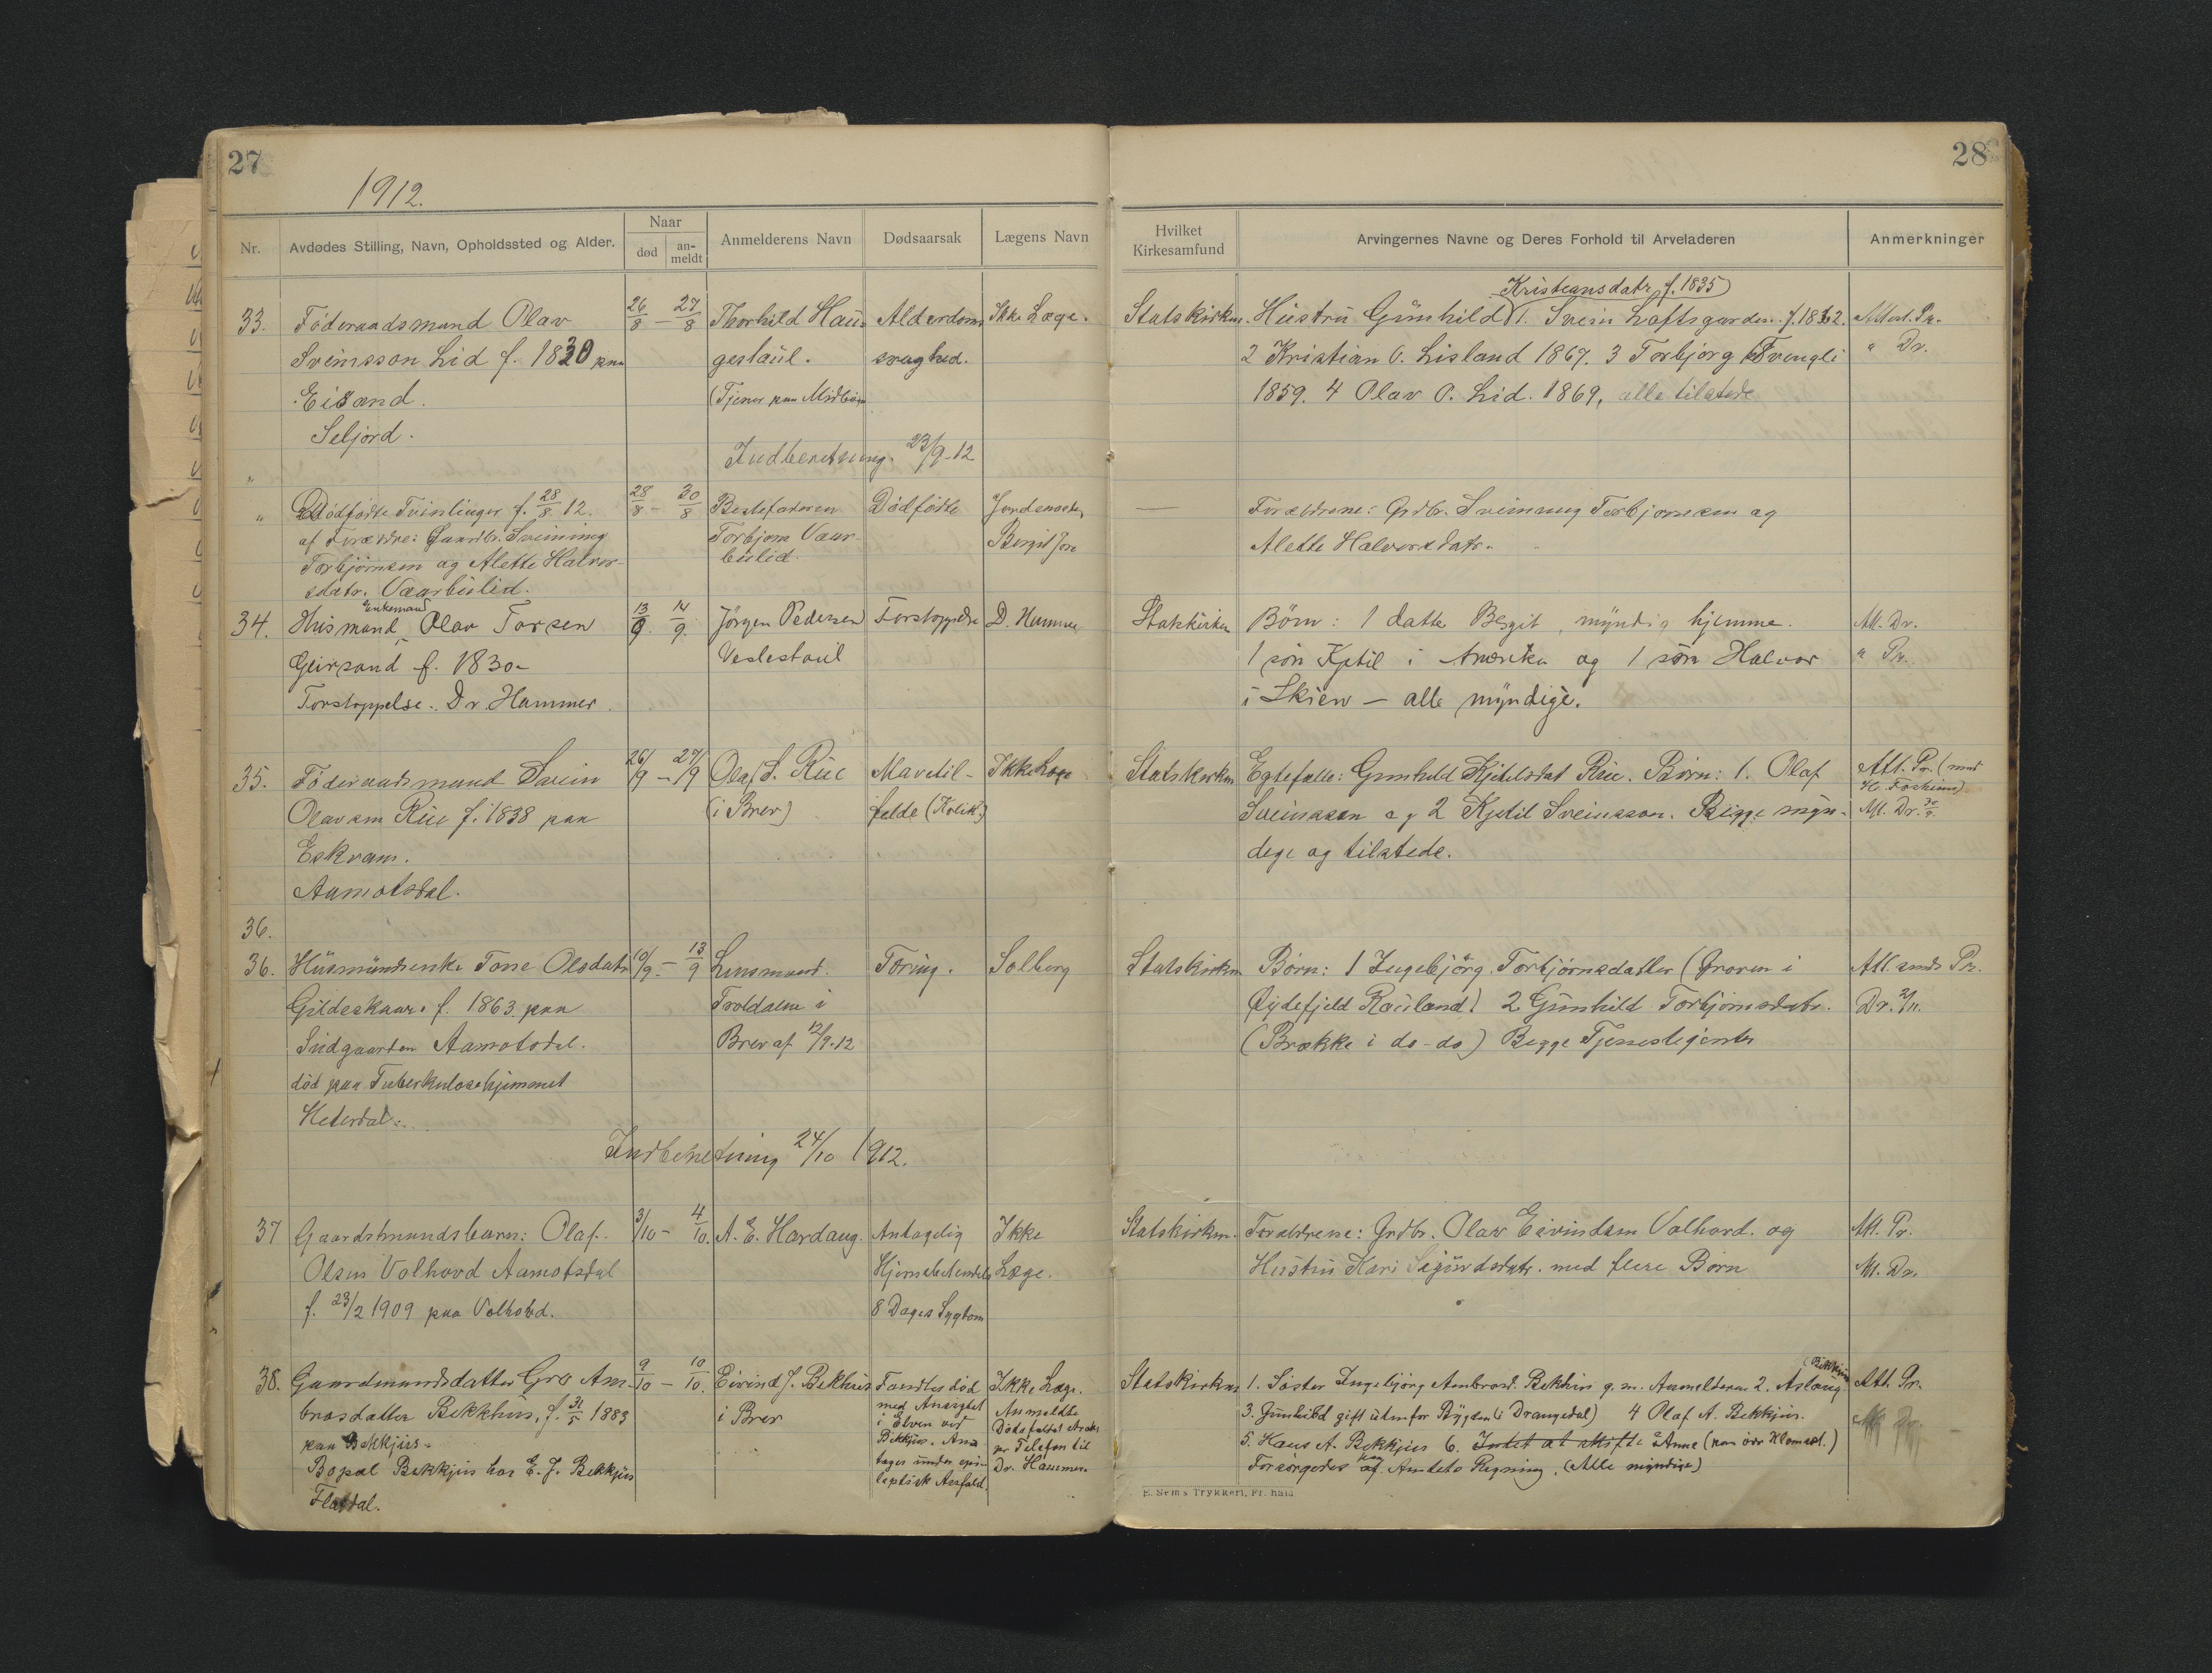 27
1912.
28
Nr.
Avdødes Stilling, Navn, Opholdssted og Alder.
Naar
død
an-
meldt
Anmelderens Navn
Dødsaarsak
Lægens Navn
Hvilket
Kirkesamfund
Arvingernes Navne og Deres Forhold til Arveladeren
Anmerkninger
33.
Föderaadsmand Olav
Sveinsson Lid f. 1830 paa
Eisand.
Seljord.
26/8 – 27/8
Thorhild Hau-
gestaul.
(Tjener paa
Alderdoms
svaghed.
Ikke Læge.
Statskirken.
Kristiansdatr f. 1835
Hustru Gunhild 1. Svein Loftsgarden. f. 1862.
2 Kristian O. Lisland 1867. 3 Torbjørg
1859. 4 Olav O. Lid. 1869, alle tilstede
Pr.
" Dr.
Indberetning. 23/9-12
"
"
Dödfödte Tvinlinger f. 28/8 12.
af Forældre: Gaardbr. Sveinung
Torbjörnsen og Alette Halvor-
sdatr. Vaarbulid.
28/8 – 30/8
Bestefaderen
Torbjørn Vaar-
bulid.
Dödfödte
Jordemoder
Bergit
—
Forældrene: Grdbr. Sveinung Torbjørnsen og
Alette Halvorsdatr.
34.
Enkemand
Husmand Olav Torsen
Geirsand f. 1830.
Forstoppelse. Dr. Hammer.
13/9. 14/9.
Jörgen Pedersen
Veslestaul
Forstoppelse
D. Hammer
Statskirken
Börn: 1 datter Bergit, myndig hjemme.
1 sön Kjetil i Amerika og 1 sön Halvor
i Skien – alle myndige.
Att. Dr.
" Pr.
35.
Föderaadsmand Svein
Olavsen Rue f. 1838 paa
Eskram.
Aamotsdal.
26/9 – 27/9
Olaf S. Rue
(i Brev)
Mavetil-
felde (Kolik)
Ikke Læge
Statskirken
Egtefælle: Gunhild Kjetilsdat Rue. Børn: 1. Olaf
Sveinssen og 2 Kjetil Sveinsson. Begge myn-
dege og tilstede.
Att. Pr. (med
Att. Dr. 30/9
36.
36.
Husmandsenke Tone Olsdatr
Gildeskaar. f. 1863 paa
Sudgaarden Aamotsdal.
död paa Tuberkulosehjemmet
Hiterdal.
10/9. – 13/9
Lensmand.
Troldalen i
Brev af 12/9-12
Tæring.
Solberg
Statskirken
Börn: 1 Ingebjörg Torbjörnsdatter (Groven i
Öydefjeld Rauland) 2 Gunhild Torbjörnsdatr.
(Brække i do-do) Begge Tjenestejenter
Att. sendt Pr.
Dr. 2/11.
Indberetning 24/10 1912.
37
Gaardsmandsbarn: Olaf
Olsen Volhovd Aamotsdal
f. 23/2 1909 paa Volhovd.
3/10 – 4/10.
A. E. Hardaug.
Antagelig
8 Dages Sygdom
Ikke
Læge.
Statskirken.
Forældrene: Grdbr. Olav Eivindsen Volhovd. og
Hustru Kari Sigurdsdatr. med flere Børn
Att. Pr.
Att. Dr.
38.
Gaardmandsdatter Gro Am-
brosdatter Bekkhus, f. 31/5 1883
paa Bekkjus.
Bopæl Bekkjus hos E. J. Bekkjus
Flatdal.
9/10 – 10/10.
Eivind J. Bekhus
i Brev
Fandtes död
med Ansigtet
i Elven ved
Bekkjus. An-
tages under epi-
leptisk Anfald.
Ikke Læge.
Anmeldte
Dödsfaldet straks
pr Telefon til
Dr. Hammer.
Statskirken
(Bekkjus
1. Söster Ingebjörg Ambrosd. Bekkhus g. m. Anmelderen 2. Aslaug
3. Gunhild gift udenfor Bygden (i Drangedal) 4 Olaf A. Bekkjus.
5. Hans A. Bekkjus 6. Intet at skifte Anne (
Forsörgedes paa Amtets Regning. (Alle myndige)
Att. Pr.
E. Sem's Trykkeri, Fr.hald